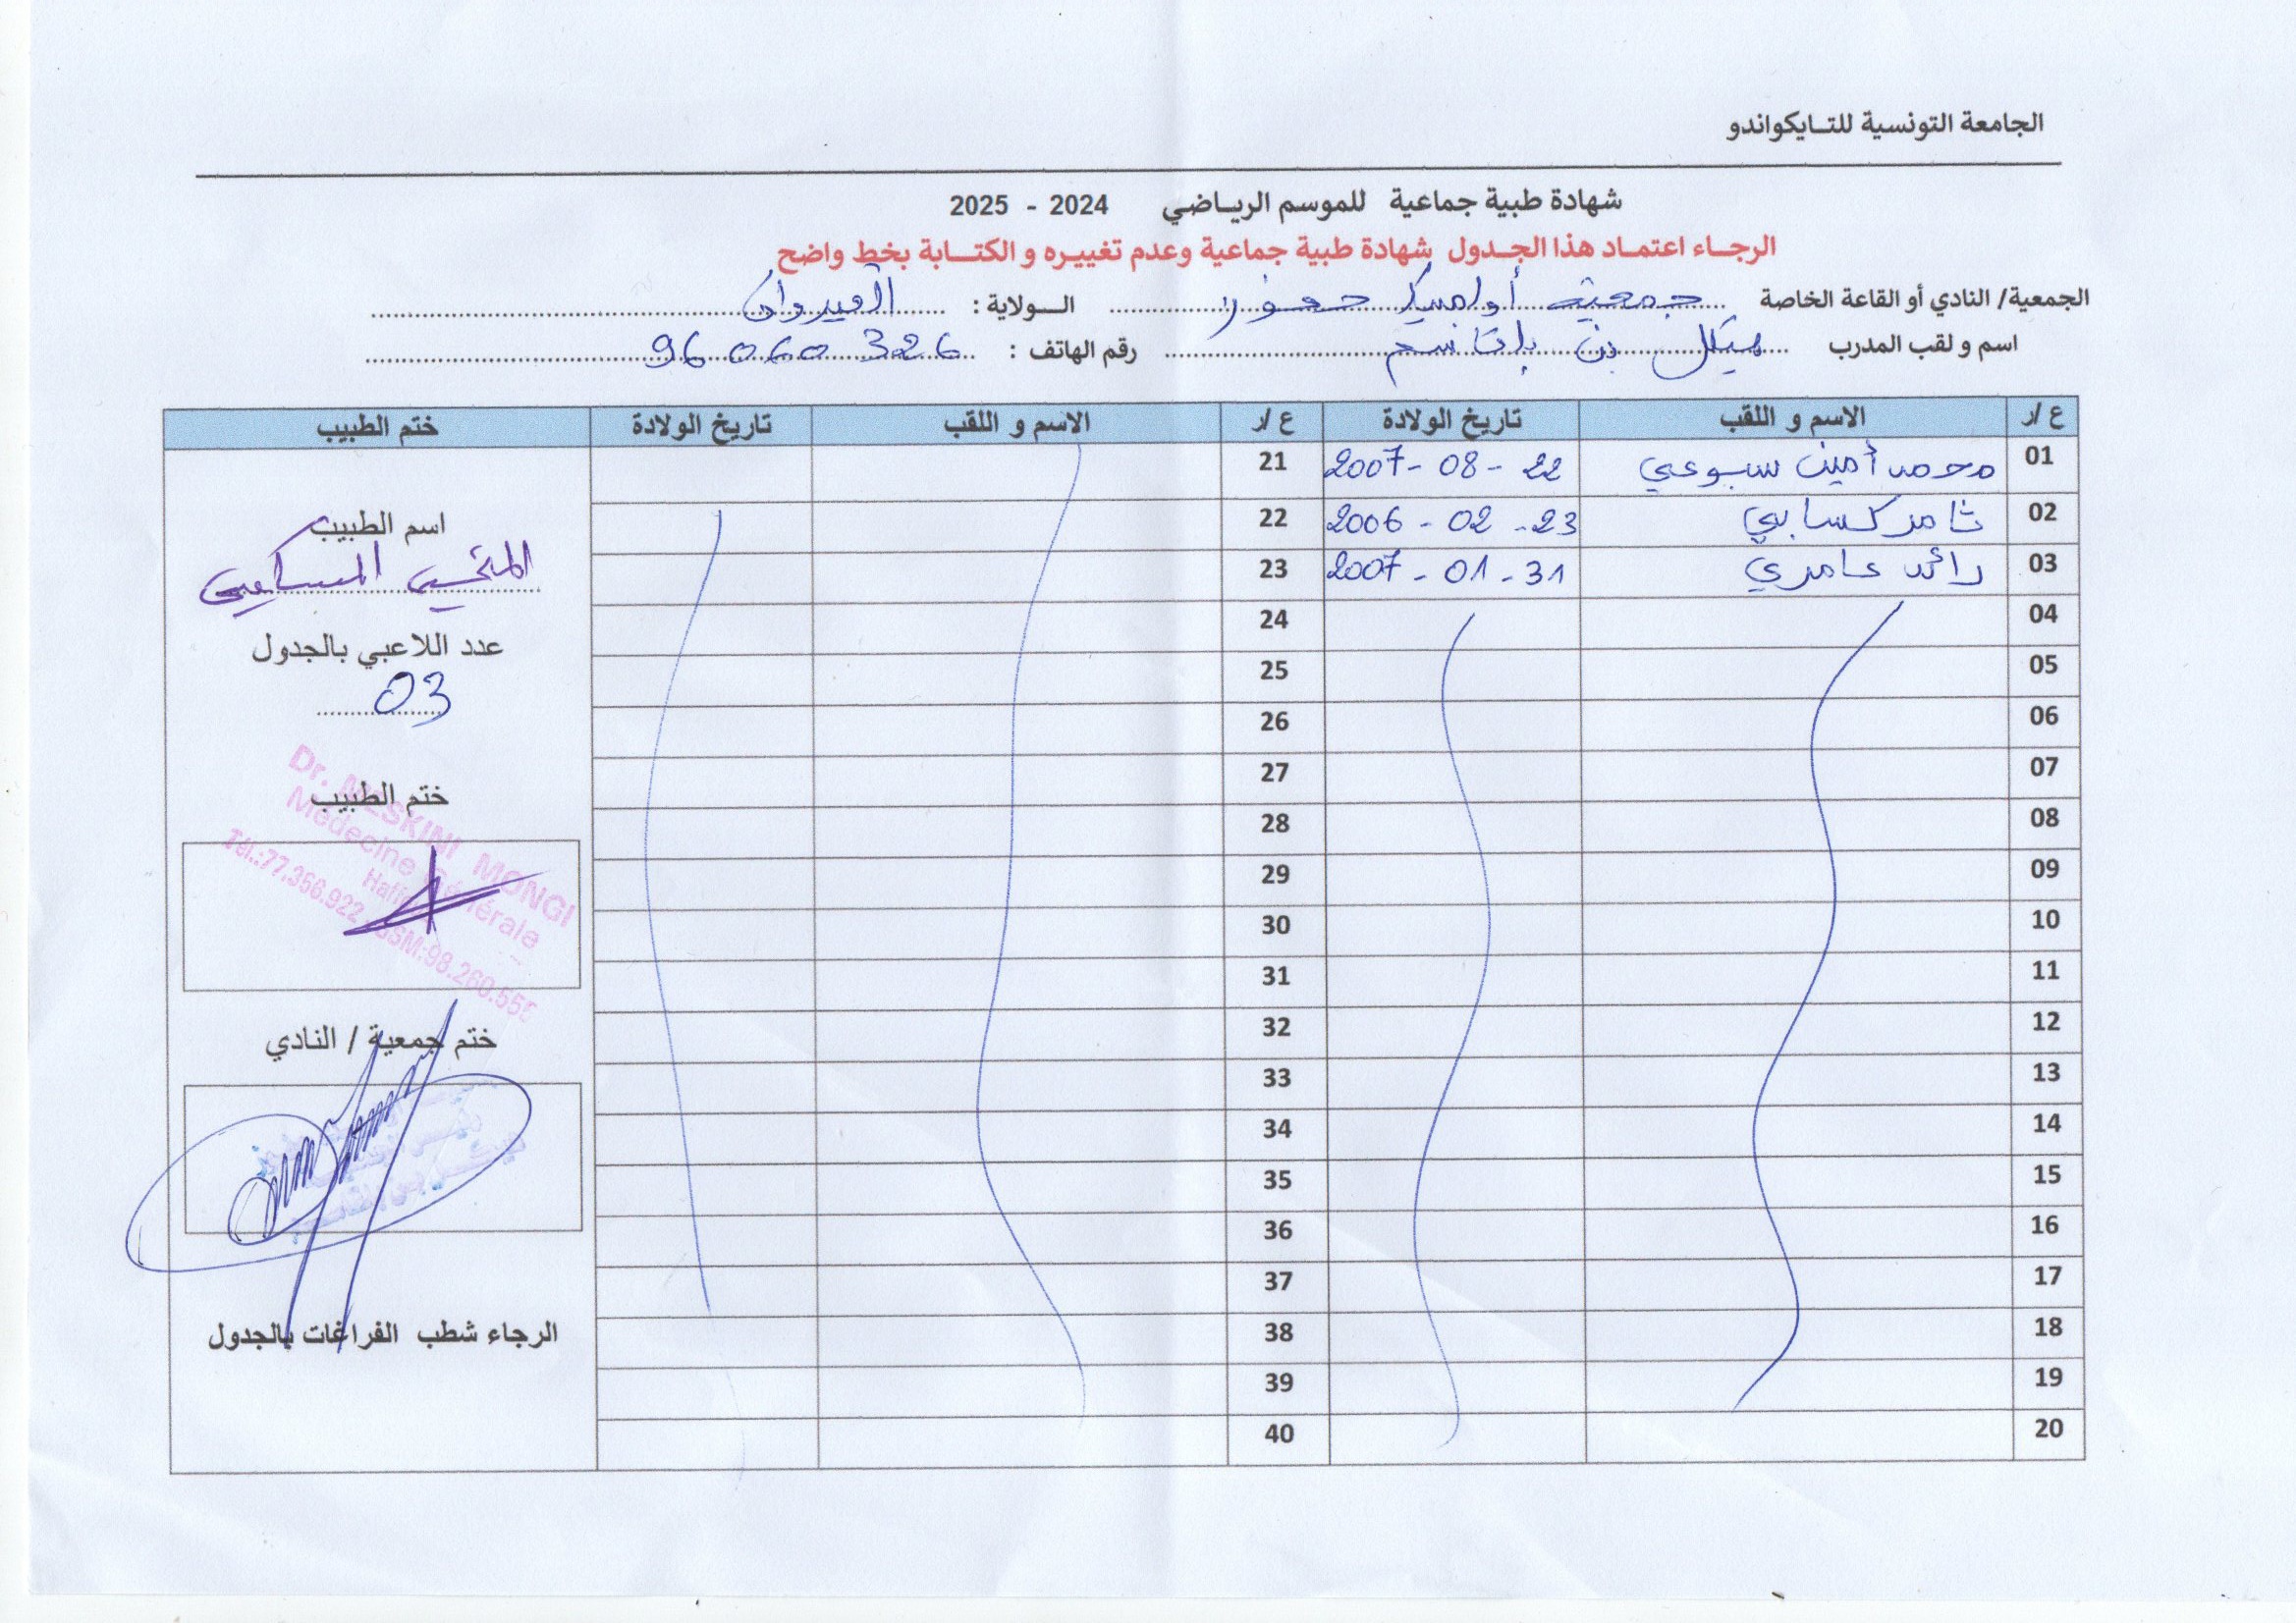 الجامعة التونسية للتــايكواندو
شهادة طبية جماعية للموسم الرياضي 2024 - 2025
الرجــاء اعتمـاد هذا الجـدول شهادة طبية جماعية وعدم تغييـره و الكتــابة بخط واضح
الجمعية/ النادي أو القاعة الخاصة جمعية أولمبيك الــولاية : القيروان
اسم و لقب المدرب هيكل بن بلقاسم رقم الهاتف : 96 060 326
ع /ر الاسم و اللقب تاريخ الولادة ع /ر الاسم و اللقب تاريخ الولادة ختم الطبيب
01 محمد أمين سبوعي 22 - 08 - 2007 21
02 ثامر كسابي 23 - 02 - 2006 22
03 رائد عامري 31 - 01 - 2007 23
04 24
05 25
06 26
07 27
08 28
09 29
10 30
11 31
12 32
13 33
14 34
15 35
16 36
17 37
18 38
19 39
20 40
اسم الطبيب
المنجي المسكيني
عدد اللاعبي بالجدول
03
ختم الطبيب
Dr. MESKINI MONGI
Médecine Générale
Tél.:77.356.922 GSM:98.260.555
ختم جمعية / النادي
الرجاء شطب الفراغات بالجدول